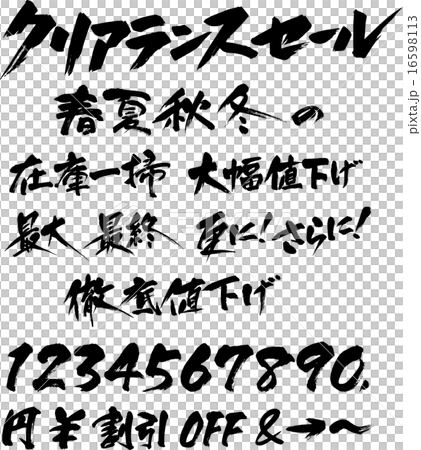 クリアランスセール
春夏秋冬の
在庫一掃 大幅値下げ
最大 最終 更に!さらに!
徹底値下げ
1234567890,
円 ¥ 割引 OFF & → 〜
pixta.jp - 16598113